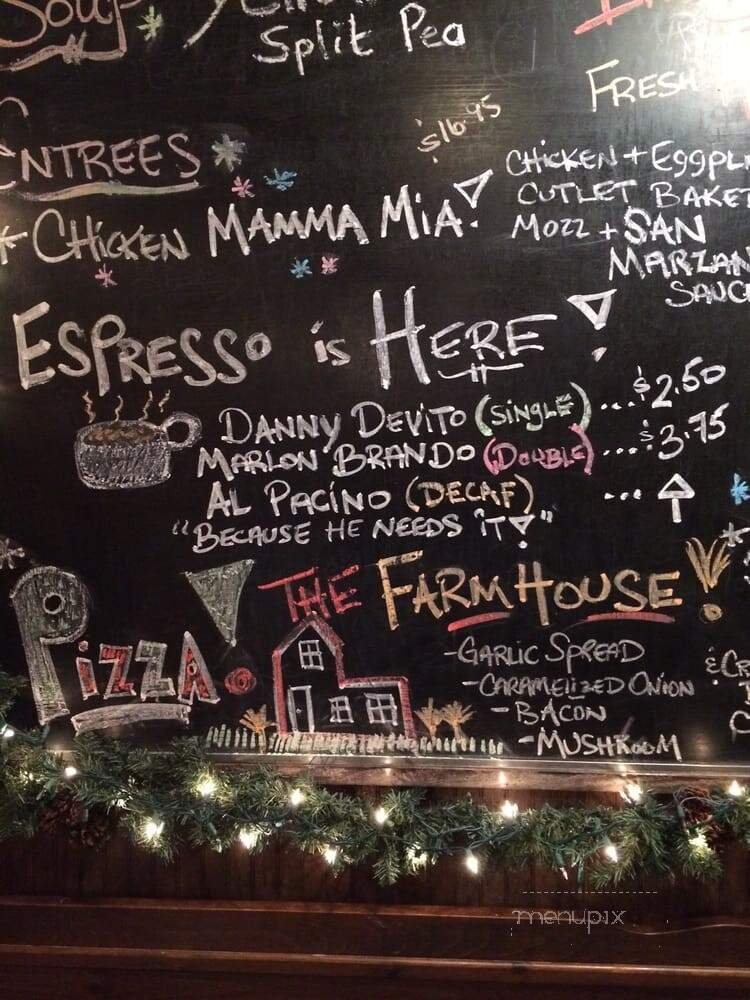 Soup
Split Pea
FRESH
ENTREES
$16.95
CHICKEN MAMMA MIA!
CHICKEN + EGGPL
CUTLET BAKE
MOZZ + SAN
MARZAN
SAUC
ESPRESSO is HERE!
DANNY DEVITO (SINGLE) ... $2.50
MARLON BRANDO (DOUBLE) .... $3.75
AL PACINO (DECAF) ... ↑
"BECAUSE HE NEEDS iT!"
PIZZA!
THE FARMHOUSE!
-GARLIC SPREAD
-CARAMELIZED ONION
-BACON
-MUSHROOM
menupix